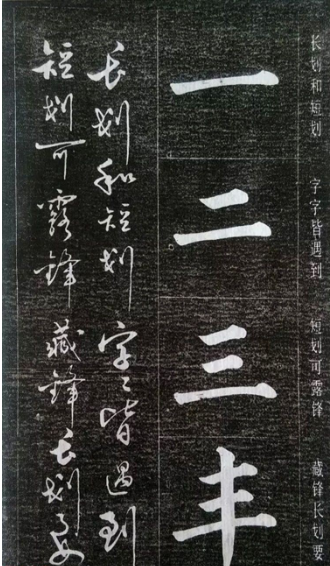 长划和短划 字字皆遇到 短划可露锋 藏锋长划要
一二三丰
长划和短划 字々皆遇到
短划可露锋 藏锋长划要